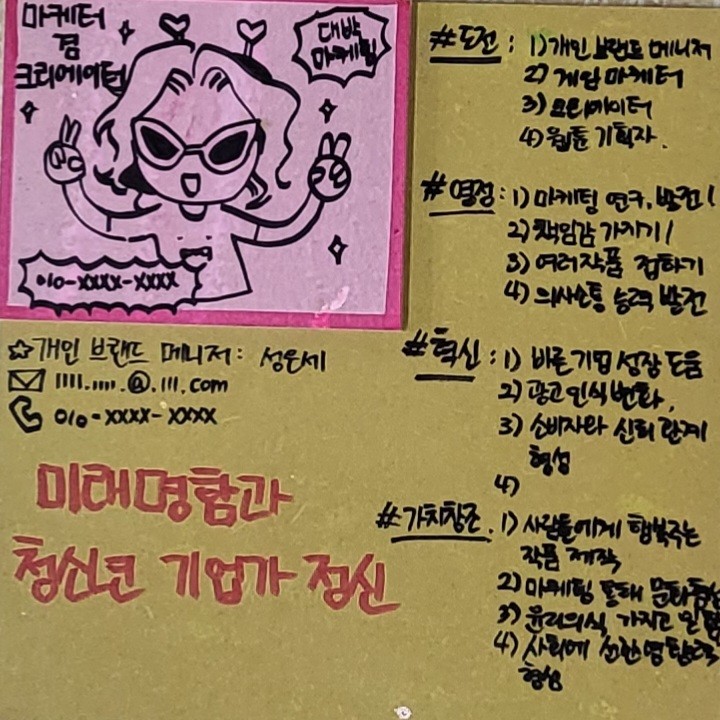 마케터
겸
크리에이텀
대박
마케팅
010-XXXX-XXXX
☆개인 브랜드 메니저: 성은세
1111.1111.@.111.com
010-XXXX-XXXX
미래명함과
청신년 기업가 정신
#도전: 1)개인 브랜드 메니저
2) 게임 마케터
3) 크리에이터
4)웹툰 기획자.
#열정: 1) 마케팅 연구, 발전!
2)책임감 가지기!
3) 여러작품 접하기
4) 의사소통 능력 발전
#혁신: 1) 바른기업 성장 도움
2) 광고인식변화,
3) 소비자와 신뢰 관계
형성
4)
#가치창조. 1) 사람들에게 행복주는
작품 제작
2) 마케팅 통해
3) 윤리의식 가지고
4) 사회에 선한영향력
형성